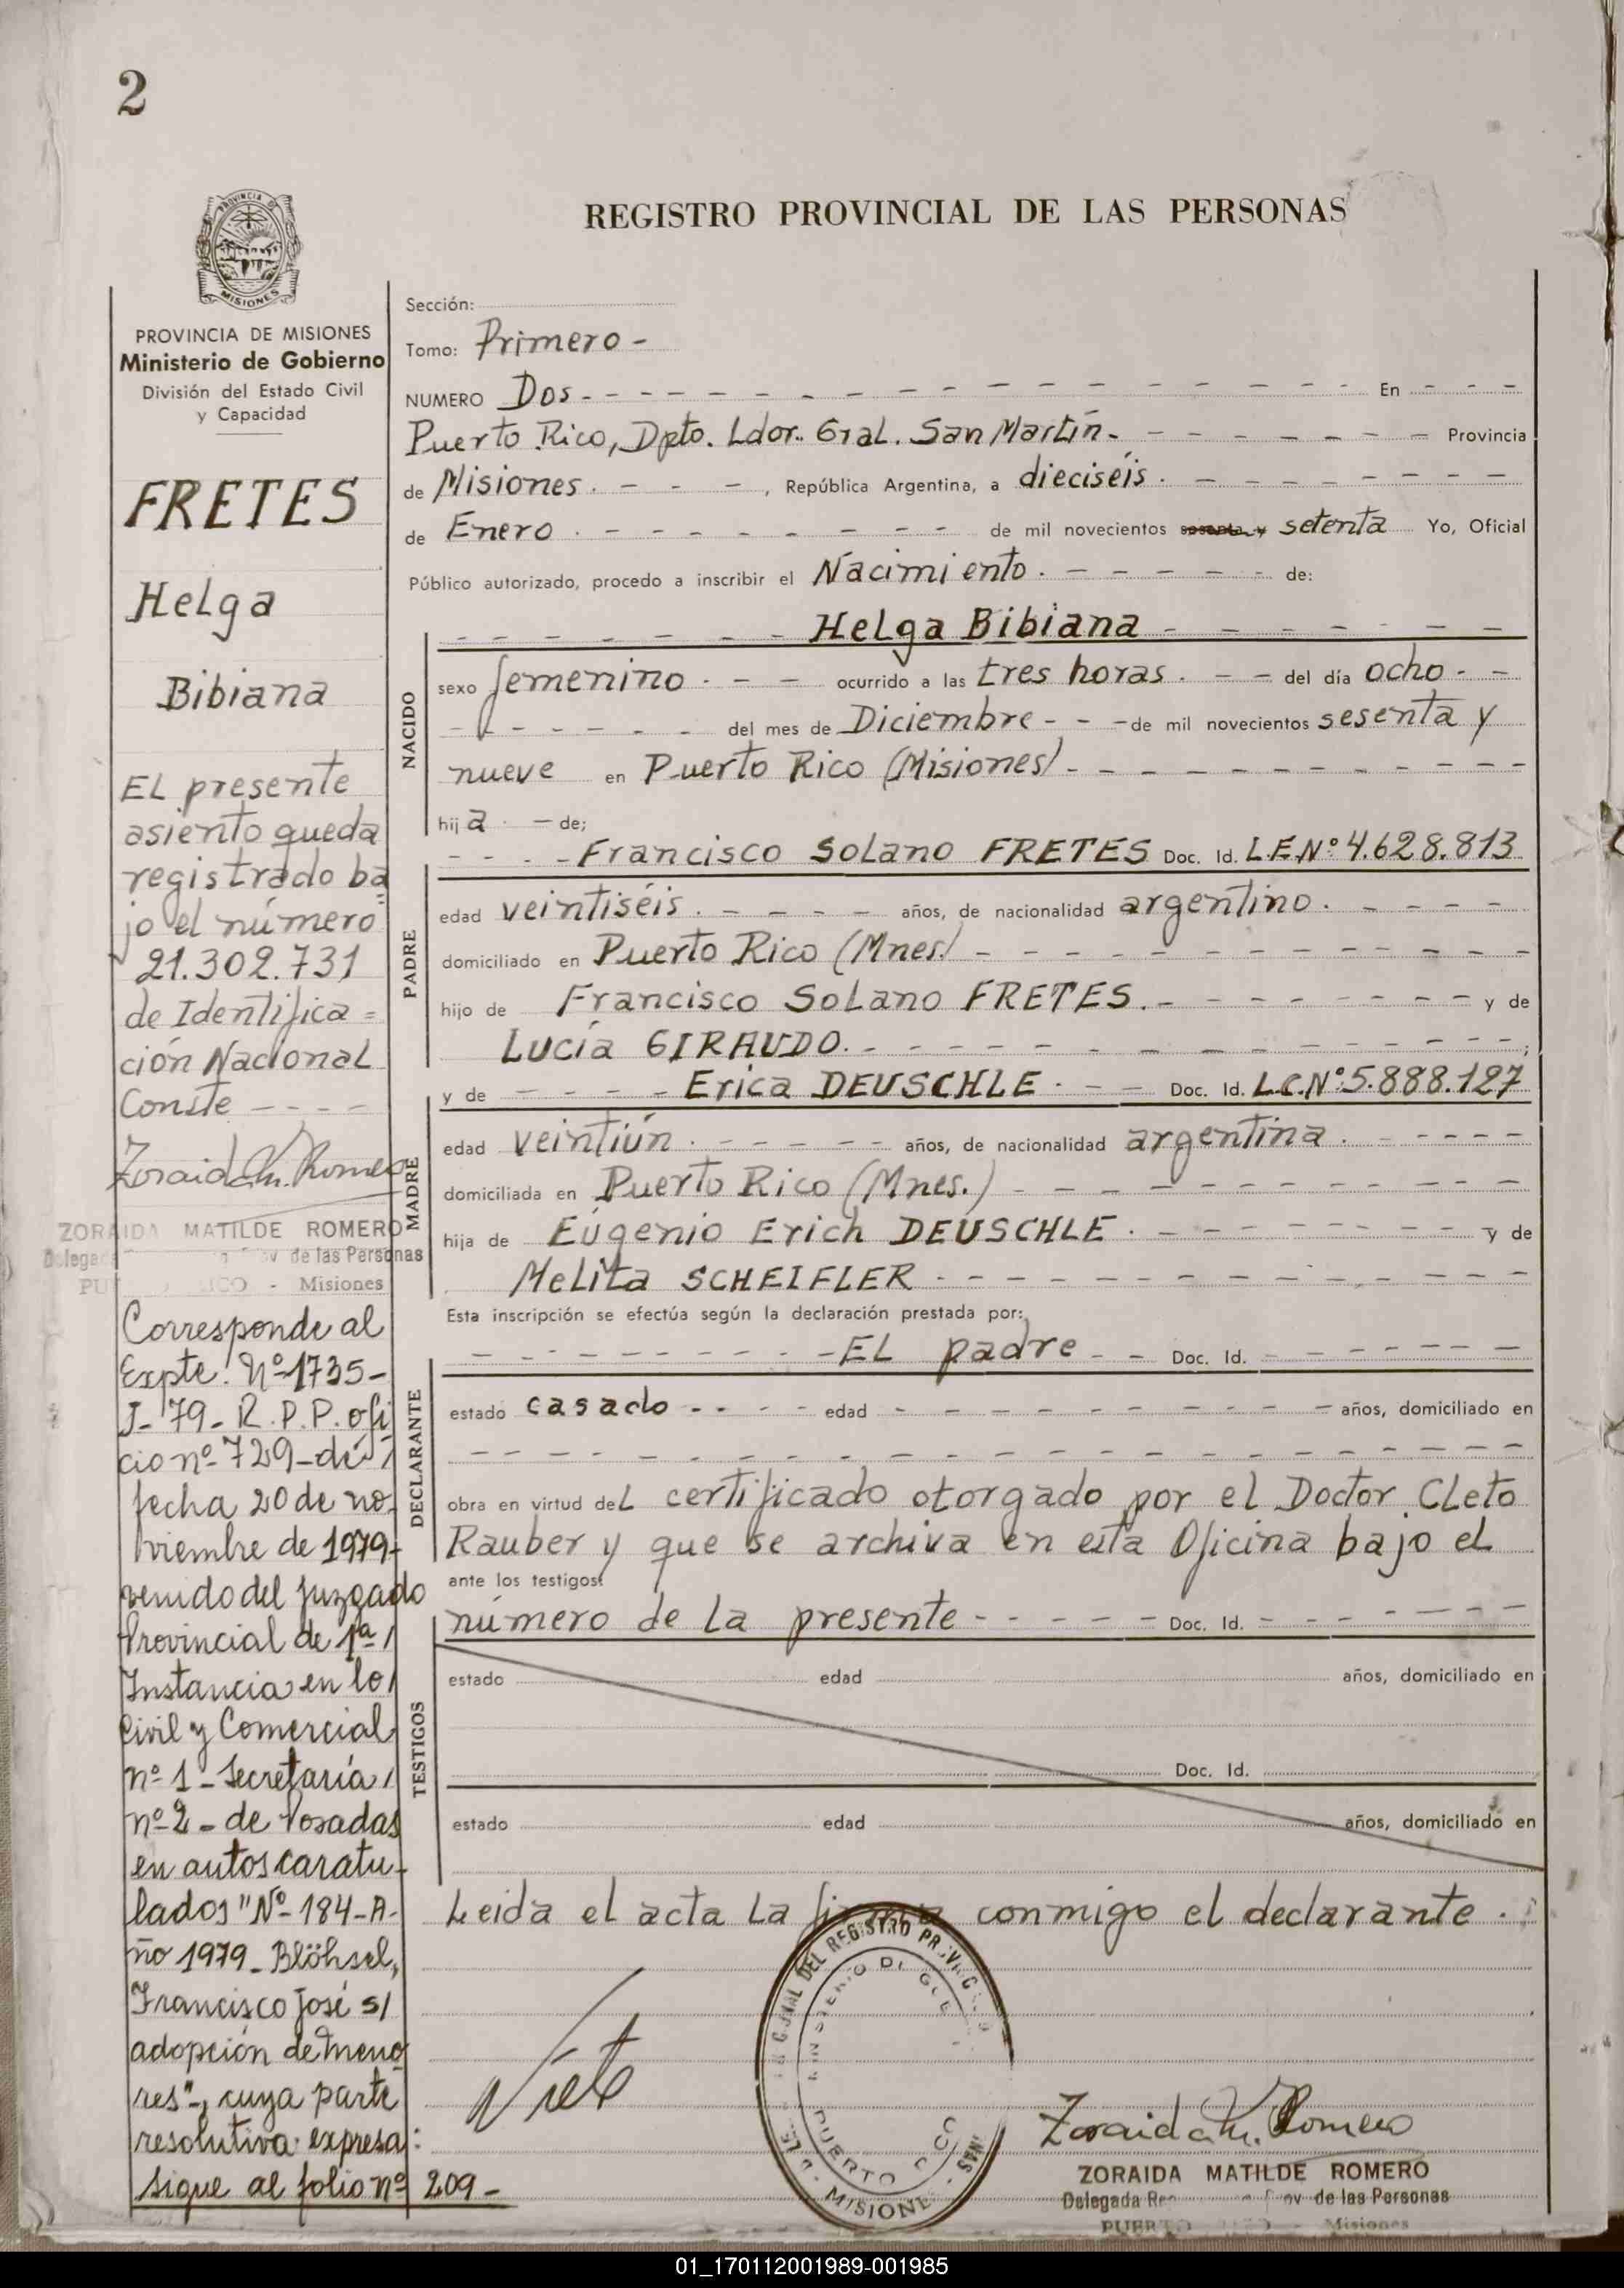 2
REGISTRO PROVINCIAL DE LAS PERSONAS
PROVINCIA DE
MISIONES
PROVINCIA DE MISIONES
Ministerio de Gobierno
División del Estado Civil
y Capacidad
FRETES
Helga
Bibiana
El presente
asiento queda
registrado ba=
jo el número
21.302.731
de Identifica=
ción Nacional
Conste - - - -
Zoraida M. Romero
ZORAIDA MATILDE ROMERO
de las Personas
- Misiones
Corresponde al
Expte. Nº 1735-
J-79- R.P.P. ofi
cio nº 729- de /
fecha 20 de no-
viembre de 1979-
venido del Juzgado
Provincial de 1ª /
Instancia en lo /
Civil y Comercial
nº 1 - Secretaría /
nº 2 - de Posadas
en autos caratu-
lados "Nº 184-A-
ño 1979 - Blöhsel,
Francisco José s/
adopción de meno
res", cuya parte
resolutiva expresa:
sigue al folio nº 209-
Sección:
Tomo: Primero -
NUMERO Dos - - - En - - -
Puerto Rico, Dpto. Ldor. Gral. San Martín. - - - Provincia
de Misiones. - - -, República Argentina, a dieciséis. - - -
de Enero. - - - de mil novecientos sesenta y setenta Yo, Oficial
Público autorizado, procedo a inscribir el Nacimiento. - - - de:
- - - Helga Bibiana - - -
NACIDO
sexo femenino. - - - ocurrido a las tres horas. - - del día ocho - -
- - - del mes de Diciembre - - - de mil novecientos sesenta y
nueve en Puerto Rico (Misiones) - - -
hija - de;
- - - Francisco Solano FRETES Doc. Id. L.E.Nº 4.628.813
PADRE
edad veintiséis. - - - años, de nacionalidad argentino. - - -
domiciliado en Puerto Rico (Mnes.) - - -
hijo de Francisco Solano FRETES. - - - y de
Lucía GIRAUDO. - - - ;
y de - - - Erica DEUSCHLE. - - Doc. Id. L.C.Nº 5.888.127
MADRE
edad veintiún. - - - años, de nacionalidad argentina. - - -
domiciliada en Puerto Rico (Mnes.) - - -
hija de Eugenio Erich DEUSCHLE. - - - y de
Melita SCHEIFLER - - -
Esta inscripción se efectúa según la declaración prestada por:
- - - El padre - - Doc. Id. - - -
DECLARANTE
estado casado - - - edad - - - años, domiciliado en
- - -
obra en virtud del certificado otorgado por el Doctor Cleto
Rauber y que se archiva en esta Oficina bajo el
ante los testigos:
número de la presente - - - Doc. Id. - - -
TESTIGOS
estado edad años, domiciliado en
Doc. Id.
estado edad años, domiciliado en
Leida el acta la firma conmigo el declarante.
DEL REGISTRO
PUERTO
MISIONES
Zoraida M. Romero
ZORAIDA MATILDE ROMERO
Delegada de las Personas
Misiones
01_170112001989-001985